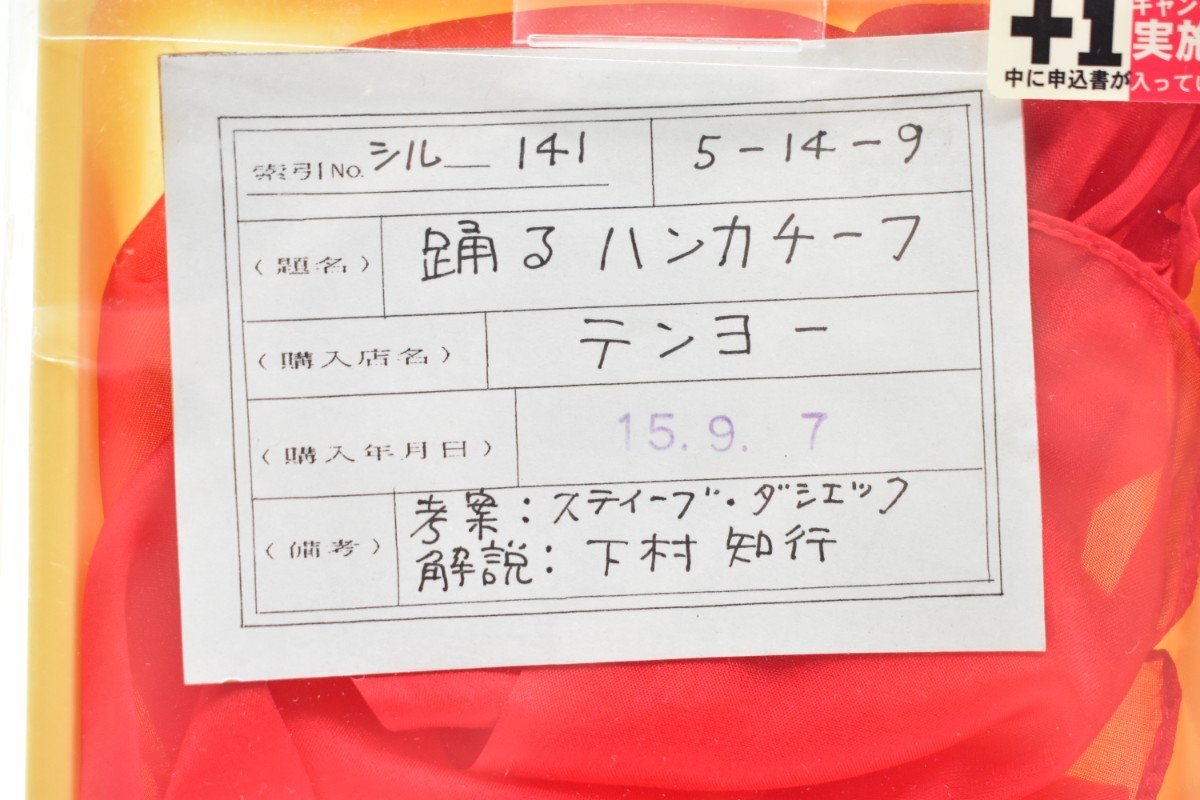 +1
キャン
実施
中に申込書が入ってい
索引No. シル— 141
5-14-9
(題名) 踊るハンカチーフ
(購入店名) テンヨー
(購入年月日) 15.9.7
(備考) 考案:スティーブ・ダシェック
解説:下村 知行